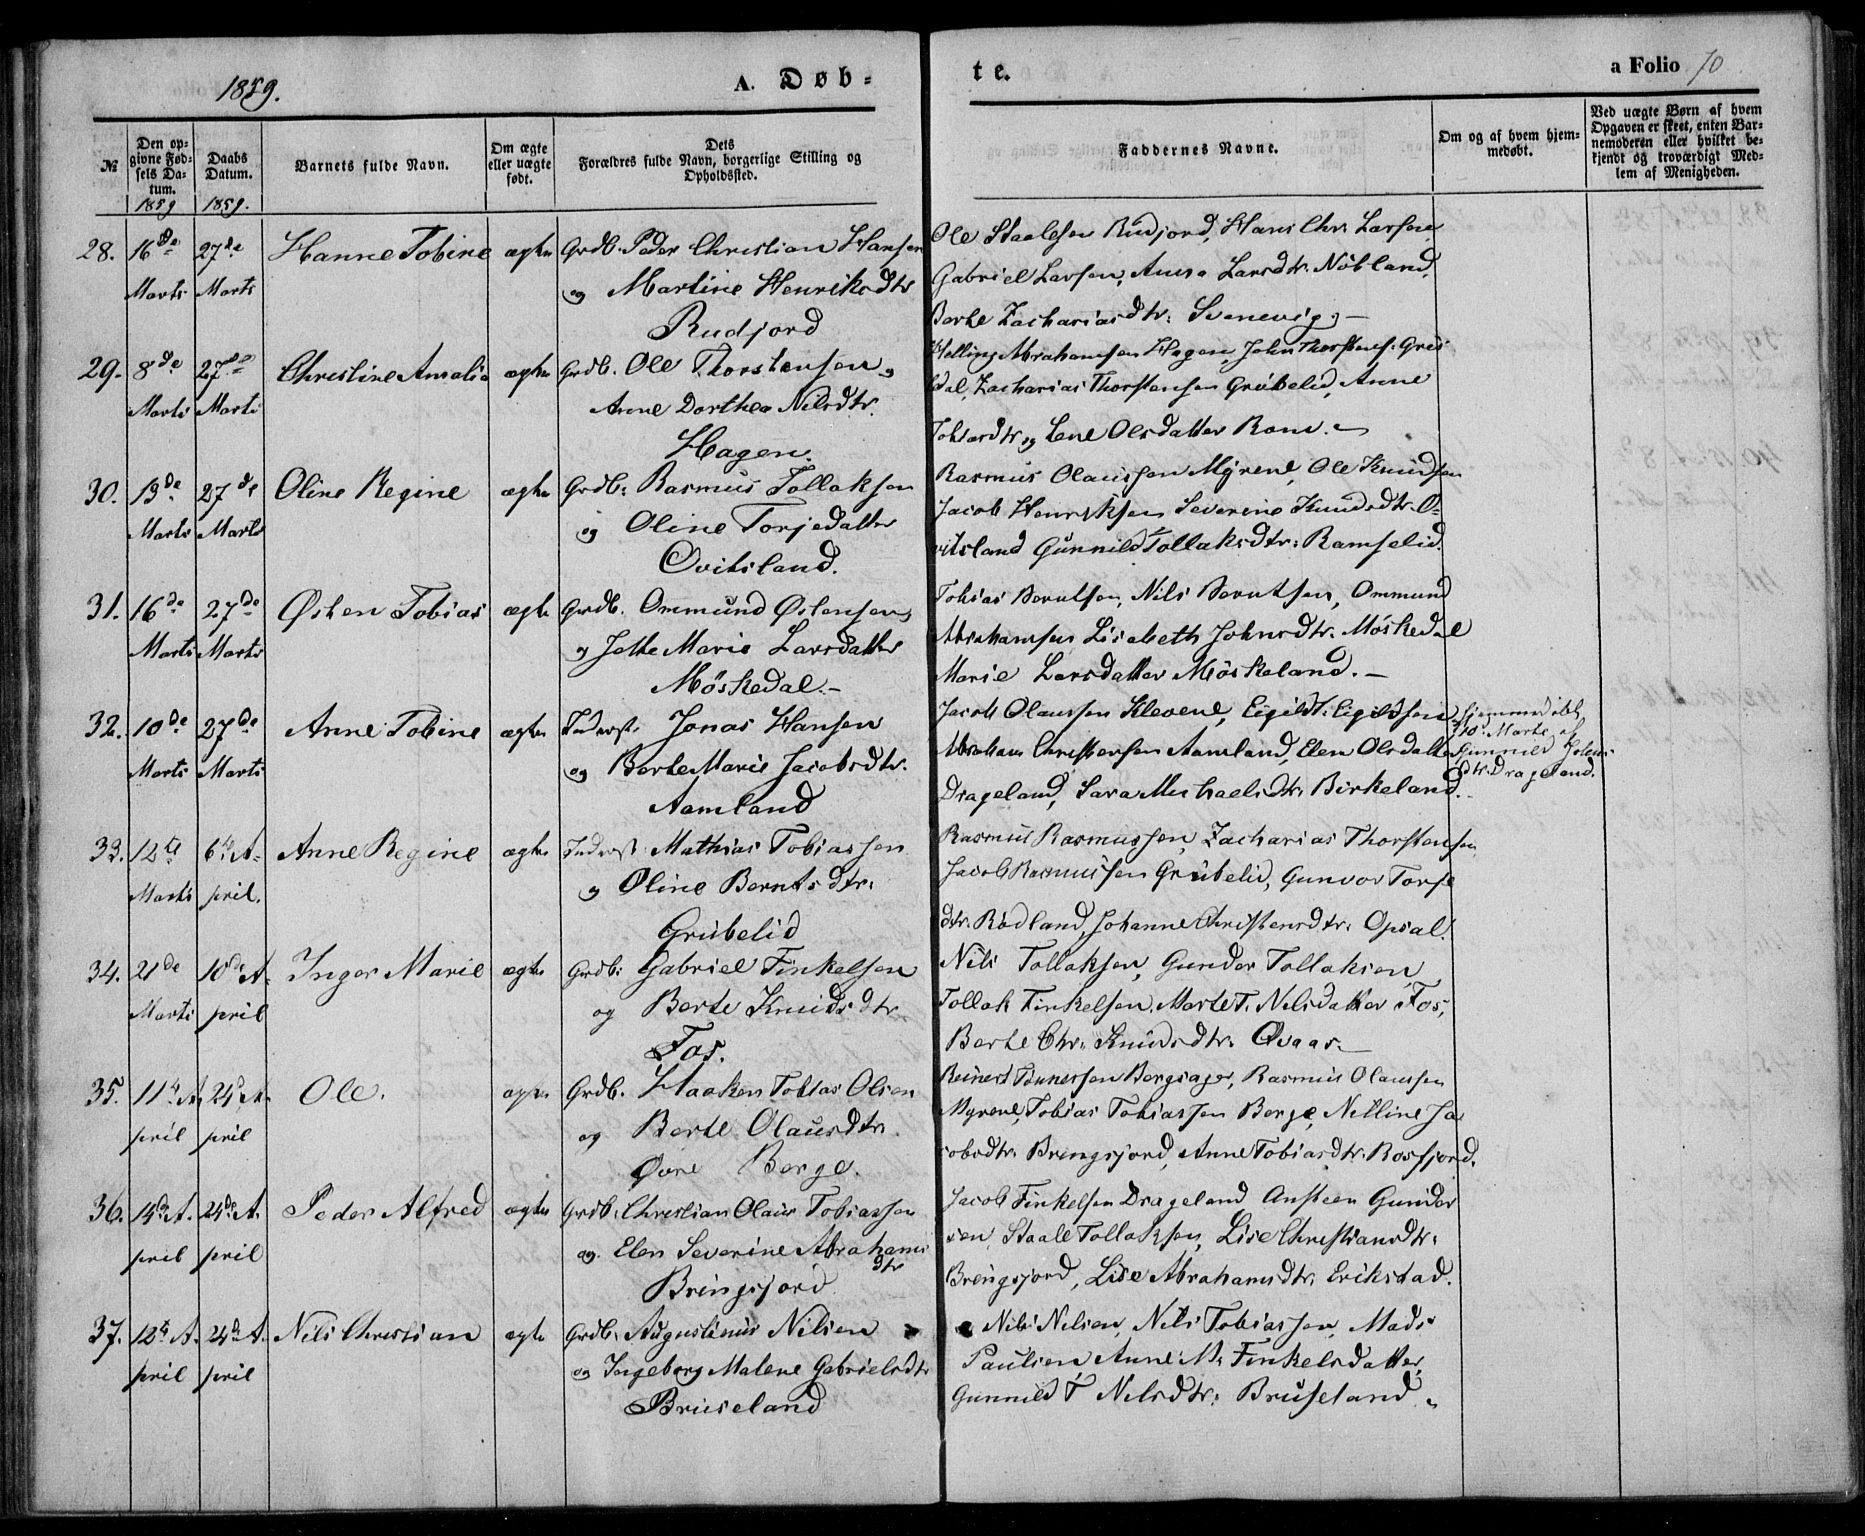 1859.
A. Døb-
te.
a Folio 70
№
Den op-
givne Fød-
sels Da-
tum.
1859
Daabs
Datum.
1859.
Barnets fulde Navn.
Om ægte
eller uægte
født.
Dets
Forældres fulde Navn, borgerlige Stilling og
Opholdssted.
Faddernes Navne.
Om og af hvem hjem-
medøbt.
Ved uægte Børn af hvem
Opgaven er skeet, enten Bar-
nemoderen eller hvilket be-
kjendt og troværdigt Med-
lem af Menigheden.
28. 16de 27de Hanne Tobine ægte Grdb. Peder Christian Hansen
Marts Marts og Martine Henriksdtr
Rudjord
Ole Staalesen Rudjord, Hans Chr. Larsen,
Gabriel Larsen, Anna Larsdtr. Nøbland,
Berte Zachariasdtr: Svenevig, —
29. 8de 27de Christine Amalia ægte Grdb. Ole Thorstensen og
Marts Marts Anne Dorthea Nilsdtr.
Hagen.
Helling Abrahamsen Hagen, John Thorstens. Gres
dal, Zacharias Thorstensen Grübelid, Anne
Tobiasdtr og Lene Olsdatter Rom. —
30. 13de 27de Oline Regine ægte Grdb: Rasmus Tollaksen
Marts Marts og Oline Torjedatter
Qvitsland.
Rasmus Olaussen Myrene, Ole Knudsen
Jacob Henriksen Severine Knudsdtr. Q-
vitsland Gunnild Tollaksdtr: Ramselid.
31. 16de 27de Østen Tobias ægte Grdb. Ommund Østensen,
Marts Marts og Jette Marie Larsdatter
Møskedal. —
Tobias Berntsen, Nils Berntsen, Ommund
Abrahamsen Lisabeth Johnsdtr. Møskedal
Marie Larsdatter Møskeland. —
32. 10de 27de Anne Tobine ægte Inderst. Jonas Hansen
Marts Marts og Berte Marie Jacobsdtr.
Aamland
Jacob Olaussen Klevene, Eigild T. Eigildsen
Abraham Christensen Aamland, Elen Olsdatter
Drageland, Sara Michaelsdtr. Birkeland.
hjemmedøbt
10 Marts af
Gunnild
dtr. Drageland.
33. 12te 6te A- Anne Regine ægte Inderst: Mathias Tobiassen
Marts pril. og Oline Berntsdtr:
Grübelid
Rasmus Rasmussen, Zacharias Thorstensen
Jacob Rasmussen Grübelid, Gunvor Torje
dtr. Rødland, Johanne Christensdtr: Opsal.
34. 21de 10de A- Inger Marie ægte Grdb: Gabriel Finkelsen
Marts pril og Berte Knudsdtr.
Fos.
Nils Tollaksen, Gunder Tollaksen,
Tollak Finkelsen, Marte T. Nilsdatter Fos,
Berte Chr. Knudsdtr. Qvaas —
35. 11te A 24de A- Ole. ægte Grdb. Haaken Tobias Olsen
pril pril og Berte Olausdtr.
Øvre Berge.
Reinert Tønnessen Bergsager, Rasmus Olaussen
Myrene, Tobias Tobiassen Berge, Nilline Ja
cobsdtr. Bringsjord, Anne Tobiasdtr. Rosfjord.
36. 14de A. 24de A. Peder Alfred ægte Grdb. Christian Olaus Tobiassen
pril pril og Elen Severine Abrahams
dtr
Bringsjord
Jacob Finkelsen Drageland Ansteen Gunder
sen, Staale Tollaksen, Lise Christiansdtr:
Bringsjord, Lise Abrahamsdtr. Erikstad.
37. 12te A. 24de A. Nils Christian ægte Grdb: Augustinus Nilsen
pril pril og Ingeborg Malene Gabrielsdtr
Bruseland
Nils Nilsen, Nils Tobiassen, Mads
Paulsen, Anne M. Finkelsdatter,
Gunnild T Nilsdtr: Bruseland. —